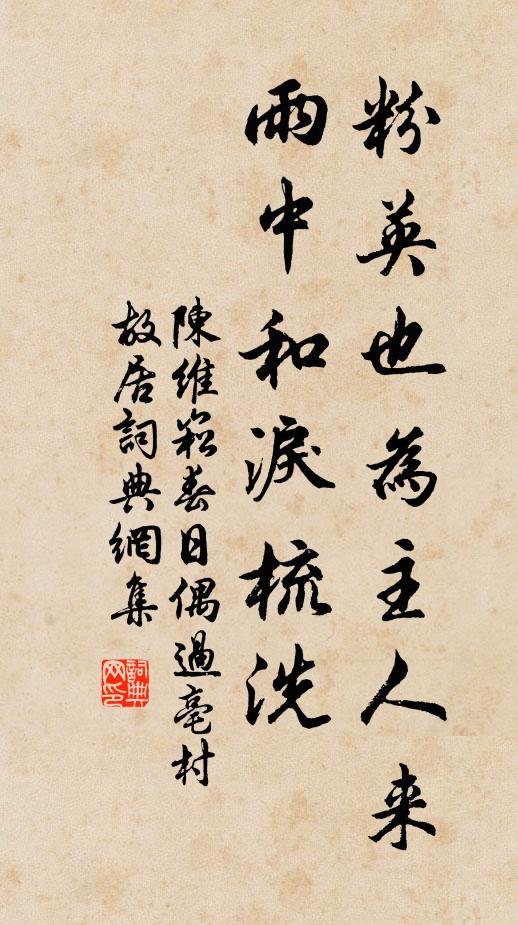 粉英也為主人来
雨中和淚梳洗
陳維崧春日偶過亳村
故居詞典網集
詞典
网印